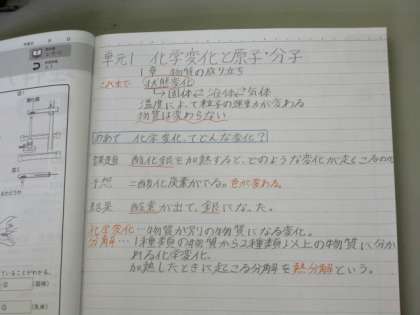 単元1 化学変化と原子・分子
1章 物質の成り立ち
これまで 状態変化
→固体⇄液体⇄気体
温度によって粒子の運動が変わる
物質は変わらない
めあて 化学変化ってどんな変化?
課題 酸化銀を加熱すると、どのような変化が起こるのか
予想 二酸化炭素がでる。色が変わる。
結果 酸素が出て、銀になった。
化学変化…物質が別の物質になる変化。
分解…1種類の物質から2種類以上の物質に分か
れる化学変化。
加熱したときに起こる分解を熱分解という。